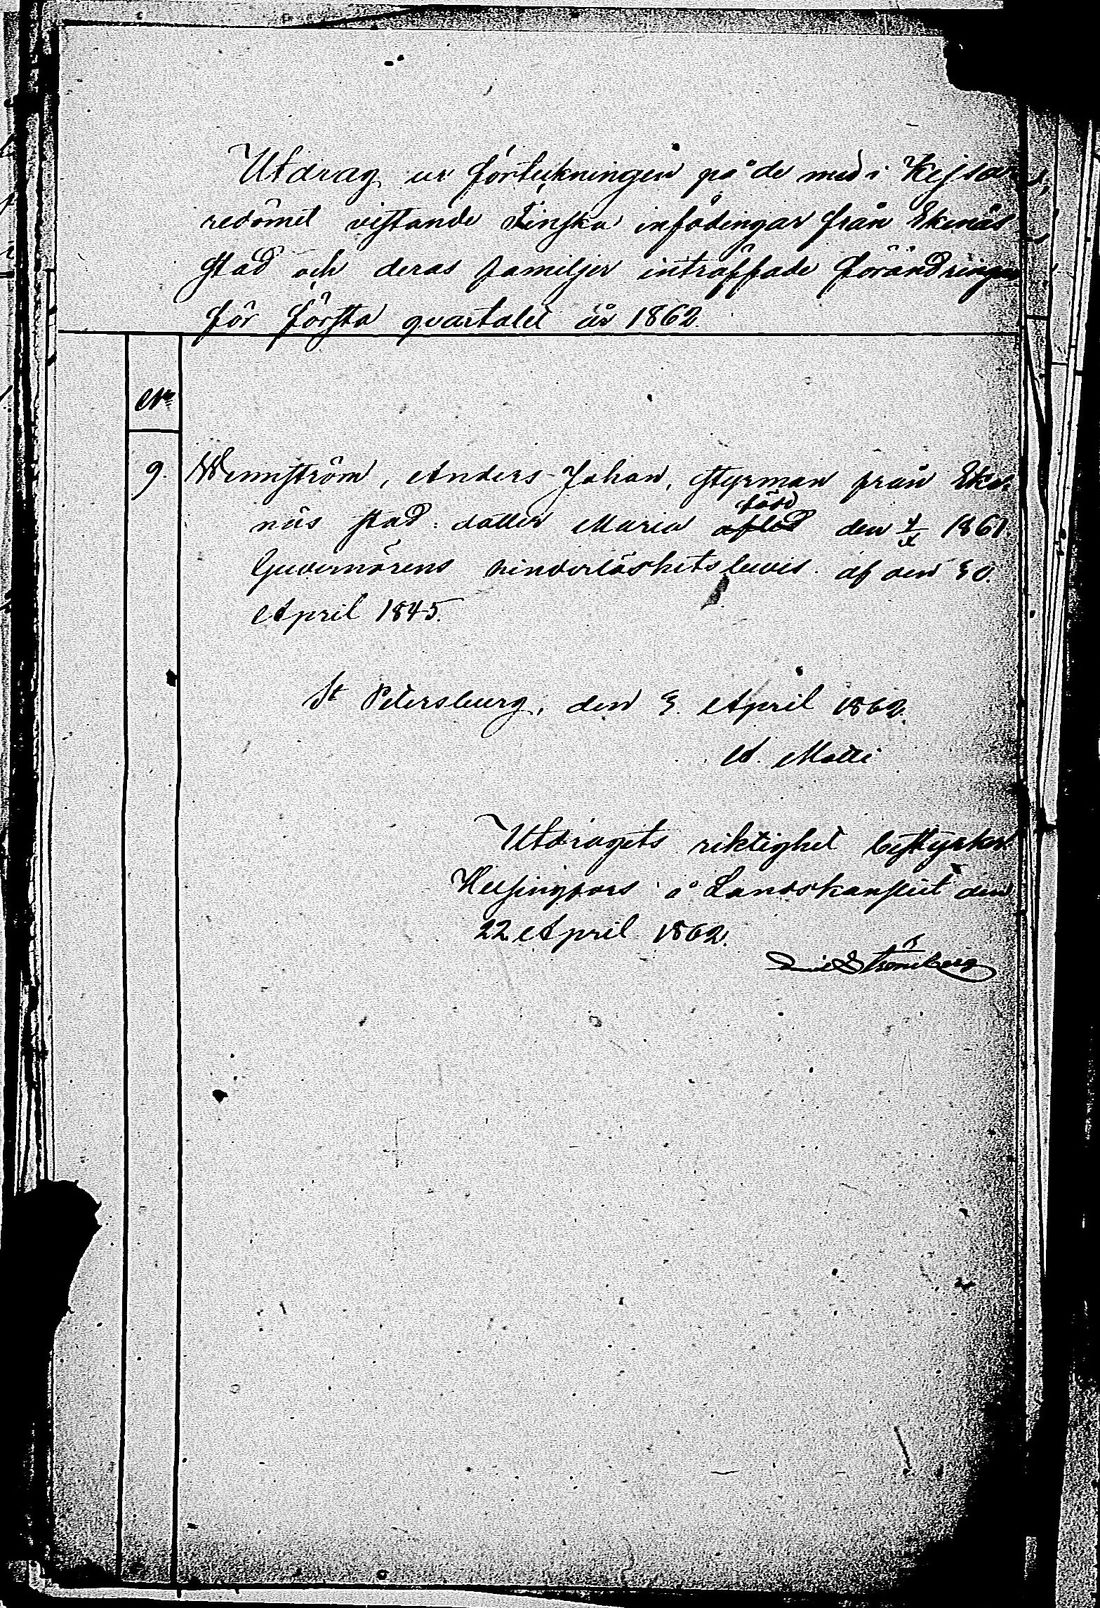 Utdrag ur förteckningen på de med i Kejsa
redömet vistande Finska infödingar från Ekenäs
stad och deras familjer inträffade förändringar
för första qvartalet år 1862
No
9. Wennström, Anders Johan, styrman från Eke
näs stad: dotter Maria född den 1861.
Guvernörens hinderlöshetsbevis af den 30
April 1845.
St Petersburg, den 3 April 1862.
A.
Utdragets riktighet bestyrker
Helsingfors å Landskansliet den
22 April 1862.
Strömberg